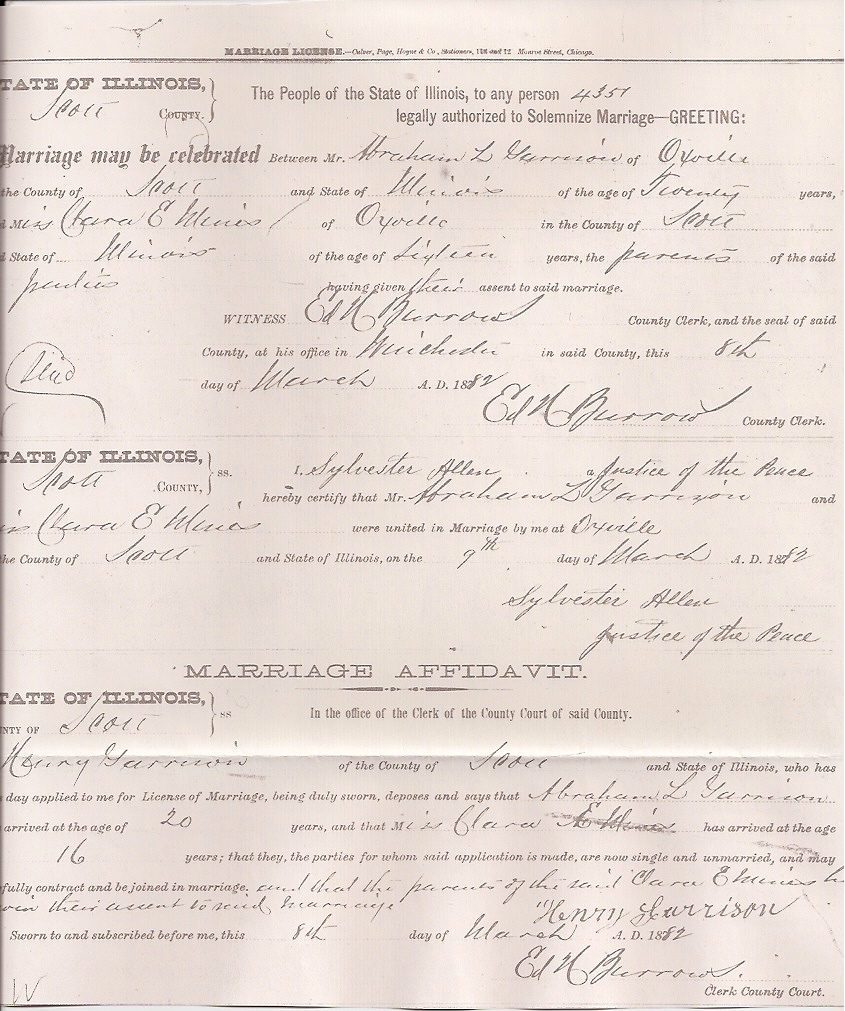 MARRIAGE LICENSE.—Culver, Page, Hoyne & Co., Stationers, 118 and 12 Monroe Street, Chicago.
TATE OF ILLINOIS,
Scott COUNTY.
The People of the State of Illinois, to any person 4351
legally authorized to Solemnize Marriage—GREETING:
Marriage may be celebrated Between Mr. Abraham L Garrison of Oxville
the County of Scott and State of Illinois of the age of Twenty years,
d Miss Clara E Mines of Oxville in the County of Scott
d State of Illinois of the age of Sixteen years, the parents of the said
parties having given their assent to said marriage.
WITNESS Ed N Burrows County Clerk, and the seal of said
County, at his office in Winchester in said County, this 8th
day of March A. D. 1882
Ed N Burrows County Clerk.
TATE OF ILLINOIS,
Scott COUNTY, ss.
I, Sylvester Allen a Justice of the Peace
hereby certify that Mr. Abraham L Garrison and
iss Clara E Mines were united in Marriage by me at Oxville
the County of Scott and State of Illinois, on the 9th day of March A. D. 1882
Sylvester Allen
Justice of the Peace
MARRIAGE AFFIDAVIT.
TATE OF ILLINOIS,
NTY OF Scott ss
In the office of the Clerk of the County Court of said County.
Henry Garrison of the County of Scott and State of Illinois, who has
s day applied to me for License of Marriage, being duly sworn, deposes and says that Abraham L Garrison
arrived at the age of 20 years, and that Miss Clara E Mines has arrived at the age
16 years; that they, the parties for whom said application is made, are now single and unmarried, and may
fully contract and be joined in marriage. and that the parents of the said Clara E Mines
their assent to said marriage
Henry Garrison
Sworn to and subscribed before me, this 8th day of March A. D. 1882
Ed N Burrows.
Clerk County Court.